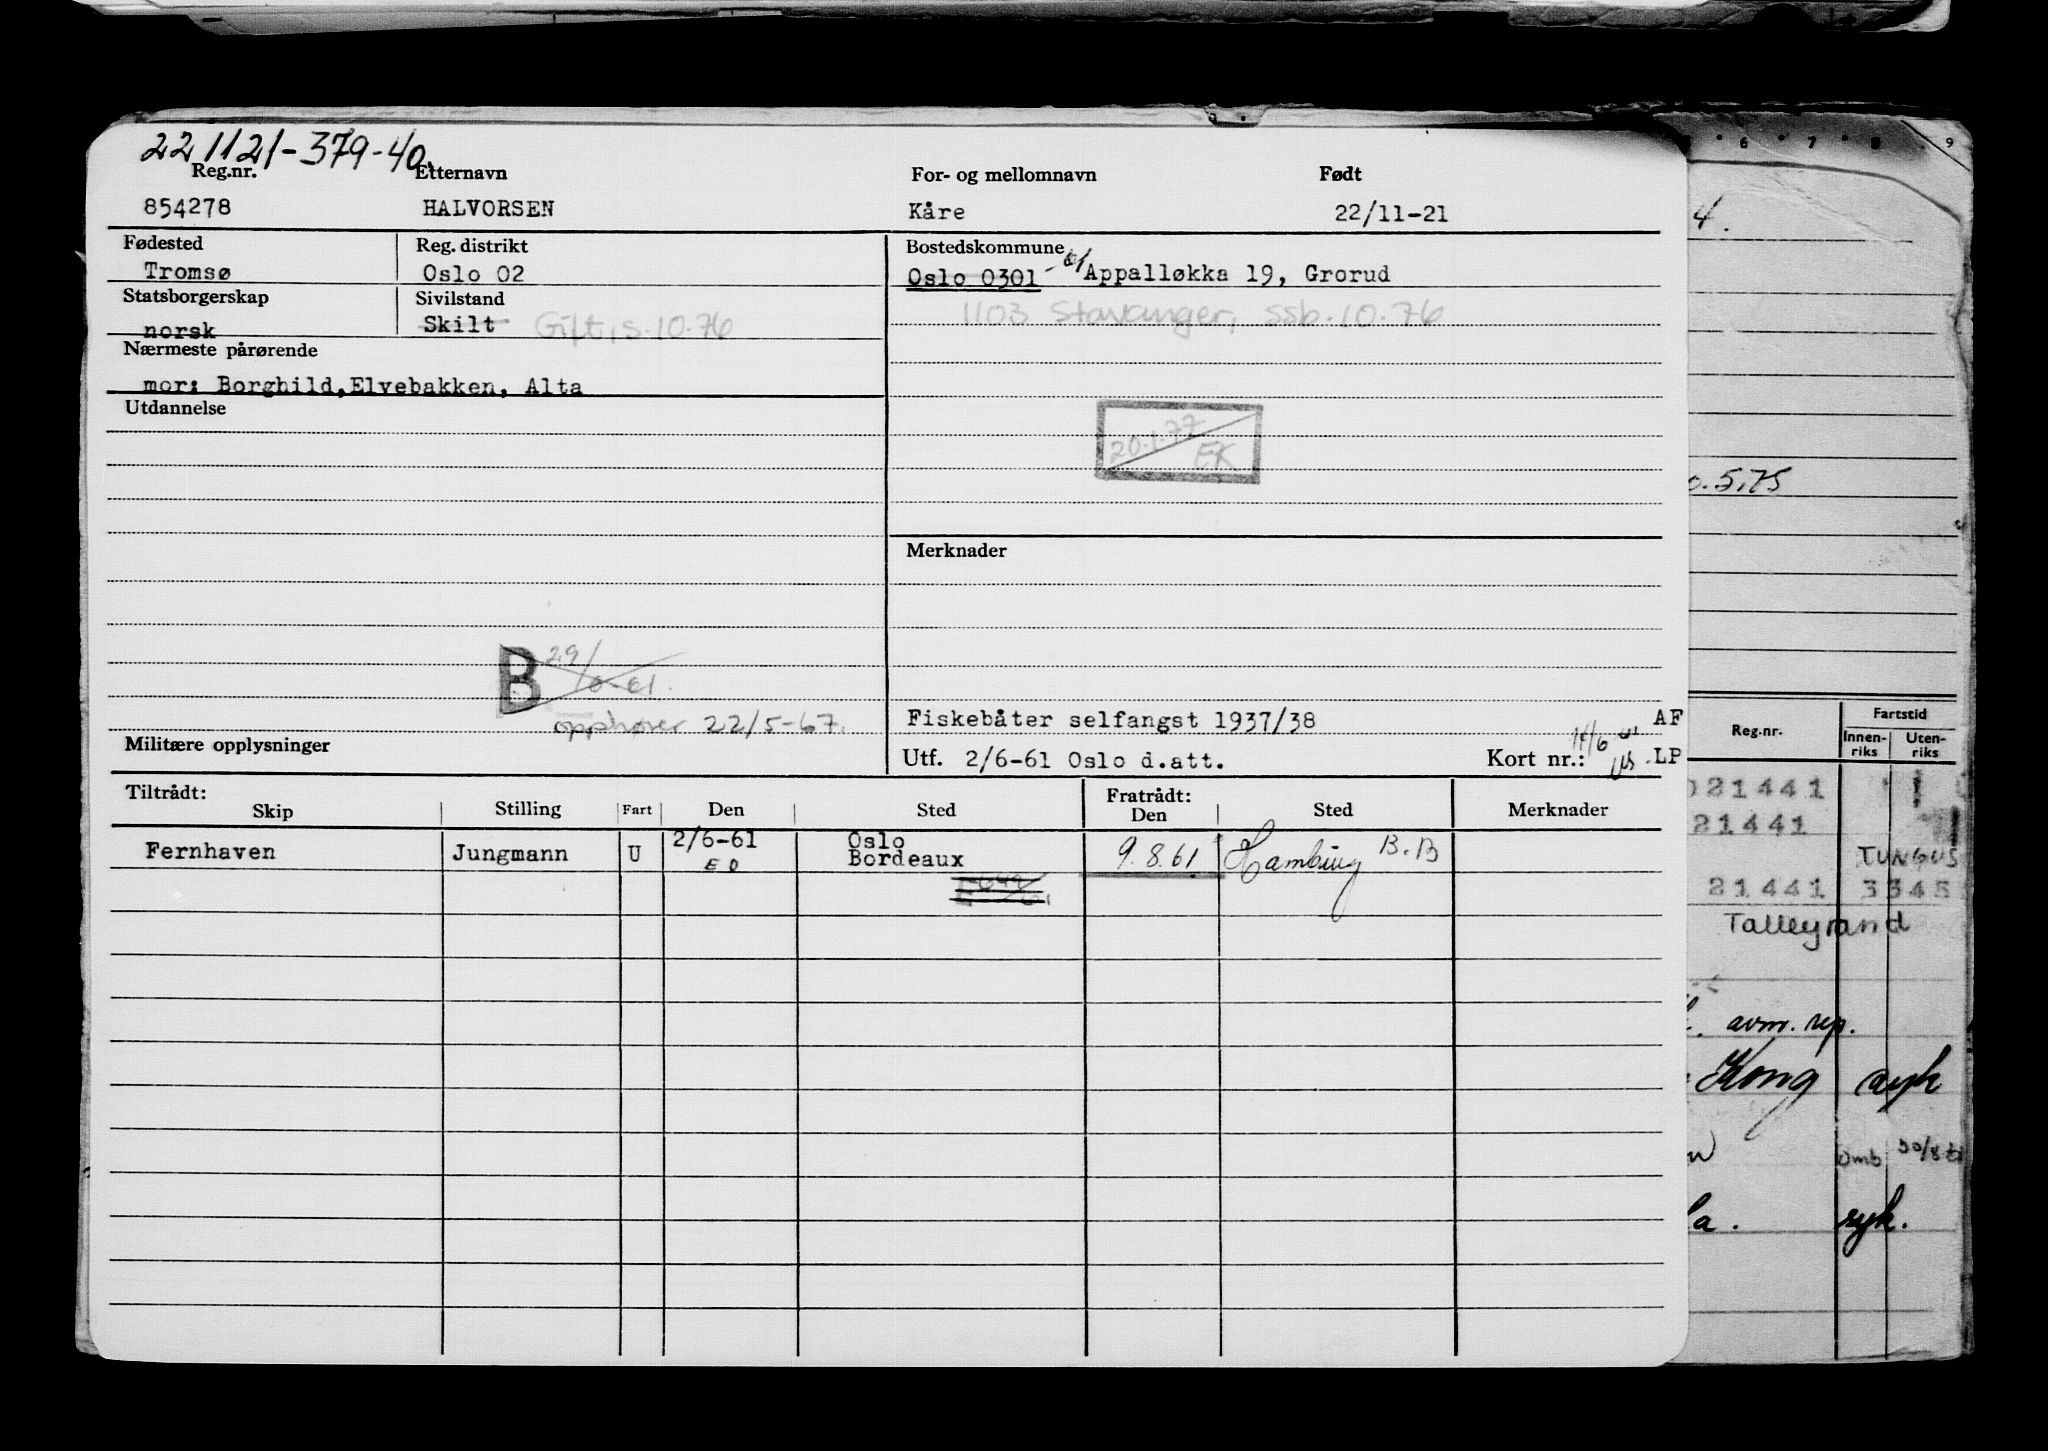 221121-379-40.
Reg.nr. Etternavn For- og mellomnavn Født
854278 HALVORSEN Kåre 22/11-21
Fødested Reg. distrikt Bostedskommune
Tromsø Oslo 02 Oslo 0301 - 61 Appalløkka 19, Grorud
Statsborgerskap Sivilstand
norsk Skilt Gift, s.10.76 1103 Stavanger, ssb.10.76
Nærmeste pårørende
mor: Borghild, Elvebakken, Alta
Utdannelse
20.1.77
EK
Merknader
B 29/6-61.
opphører 22/5-67.
Fiskebåter selfangst 1937/38 AF
Militære opplysninger
Utf. 2/6-61 Oslo d.att. Kort nr.: LP
Tiltrådt: Fratrådt:
Skip Stilling Fart Den Sted Den Sted Merknader
Fernhaven Jungmann U 2/6-61 Oslo
EO Bordeaux 9.8.61 Hamburg B.B
6 7 8 9
4.
5.75
Reg.nr. Fartstid
Innen-riks Uten-riks
21441
21441
TUNGUS
21441 3345
Talleyrand
avm. rep.
Kong syk
omb 30/8
la. syk.